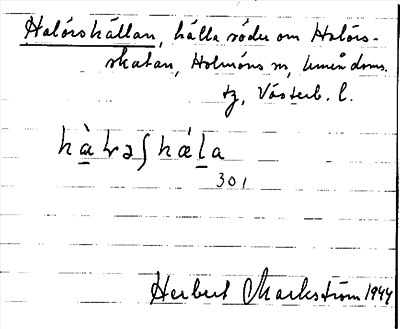 Halörshällan, hälla söder om Halörs-
skatan, Holmöns sn, Umeå doms.
tg, Västerb. l.
hàlrəʃhæla
301
Herbert Markström 1944